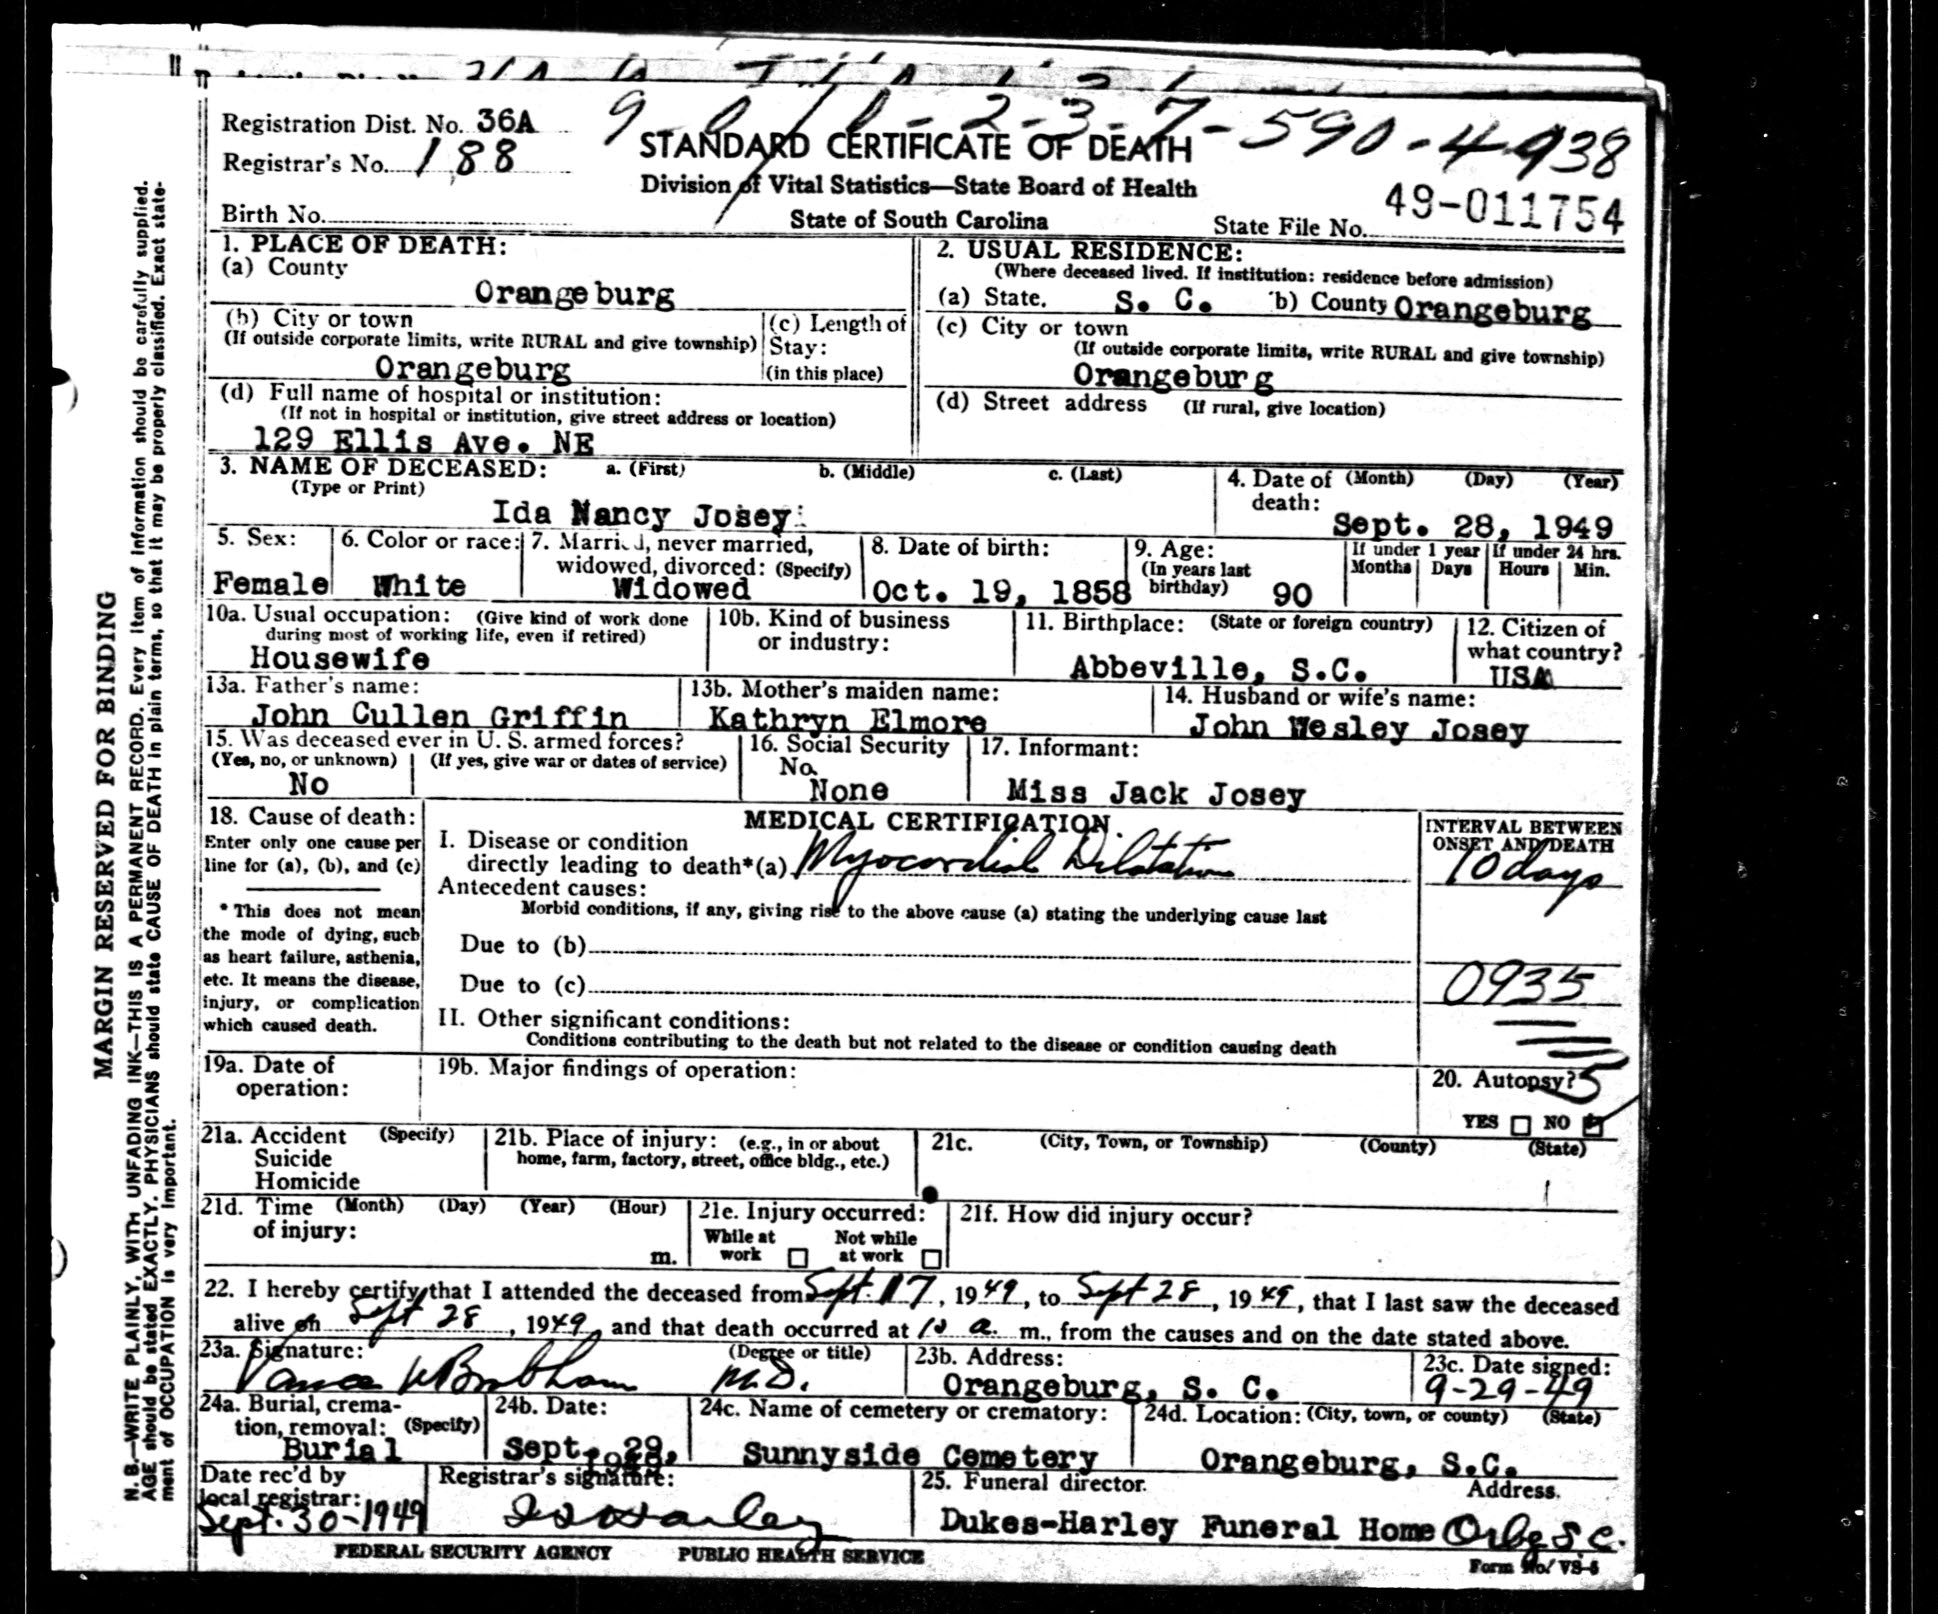 Registration Dist. No. 36A
9-0/0-2-3-7-590-4-938
Registrar's No. 188
STANDARD CERTIFICATE OF DEATH
Division of Vital Statistics—State Board of Health
49-011754
Birth No.
State of South Carolina
State File No.
1. PLACE OF DEATH:
(a) County
Orangeburg
(b) City or town
(If outside corporate limits, write RURAL and give township)
Orangeburg
(c) Length of
Stay:
(in this place)
(d) Full name of hospital or institution:
(If not in hospital or institution, give street address or location)
129 Ellis Ave. NE
2. USUAL RESIDENCE:
(Where deceased lived. If institution: residence before admission)
(a) State. S. C. b) County Orangeburg
(c) City or town
(If outside corporate limits, write RURAL and give township)
Orangeburg
(d) Street address (If rural, give location)
3. NAME OF DECEASED: a. (First) b. (Middle) c. (Last)
(Type or Print)
Ida Nancy Josey
4. Date of (Month) (Day) (Year)
death:
Sept. 28, 1949
5. Sex:
Female
6. Color or race:
White
7. Married, never married,
widowed, divorced: (Specify)
Widowed
8. Date of birth:
Oct. 19, 1858
9. Age:
(In years last
birthday) 90
If under 1 year
Months Days
If under 24 hrs.
Hours Min.
10a. Usual occupation: (Give kind of work done
during most of working life, even if retired)
Housewife
10b. Kind of business
or industry:
11. Birthplace: (State or foreign country)
Abbeville, S.C.
12. Citizen of
what country?
USA
13a. Father's name:
John Cullen Griffin
13b. Mother's maiden name:
Kathryn Elmore
14. Husband or wife's name:
John Wesley Josey
15. Was deceased ever in U. S. armed forces?
(Yes, no, or unknown) (If yes, give war or dates of service)
No
16. Social Security
No.
None
17. Informant:
Miss Jack Josey
18. Cause of death:
Enter only one cause per
line for (a), (b), and (c)
* This does not mean
the mode of dying, such
as heart failure, asthenia,
etc. It means the disease,
injury, or complication
which caused death.
MEDICAL CERTIFICATION
I. Disease or condition
directly leading to death*(a) Myocardial Dilatation
Antecedent causes:
Morbid conditions, if any, giving rise to the above cause (a) stating the underlying cause last
Due to (b)
Due to (c)
II. Other significant conditions:
Conditions contributing to the death but not related to the disease or condition causing death
INTERVAL BETWEEN
ONSET AND DEATH
10 days
0935
19a. Date of
operation:
19b. Major findings of operation:
20. Autopsy? 5
YES NO
21a. Accident (Specify)
Suicide
Homicide
21b. Place of injury: (e.g., in or about
home, farm, factory, street, office bldg., etc.)
21c. (City, Town, or Township) (County) (State)
21d. Time (Month) (Day) (Year) (Hour)
of injury:
m.
21e. Injury occurred:
While at Not while
work at work
21f. How did injury occur?
22. I hereby certify that I attended the deceased from Sept. 17, 1949, to Sept 28, 1949, that I last saw the deceased
alive on Sept 28, 1949, and that death occurred at 10 a. m., from the causes and on the date stated above.
23a. Signature: (Degree or title)
Vance W Brabham M.D.
23b. Address:
Orangeburg, S. C.
23c. Date signed:
9-29-49
24a. Burial, crema-
tion, removal: (Specify)
Burial
24b. Date:
Sept. 29,
24c. Name of cemetery or crematory:
Sunnyside Cemetery
24d. Location: (City, town, or county) (State)
Orangeburg, S.C.
Date rec'd by
local registrar:
Sept. 30-1949
Registrar's signature:
25. Funeral director. Address.
Dukes-Harley Funeral Home Orbg S.C.
FEDERAL SECURITY AGENCY PUBLIC HEALTH SERVICE
Form No. VS-5
MARGIN RESERVED FOR BINDING
N. B.—WRITE PLAINLY, WITH UNFADING INK—THIS IS A PERMANENT RECORD. Every item of information should be carefully supplied.
AGE should be stated EXACTLY. PHYSICIANS should state CAUSE OF DEATH in plain terms, so that it may be properly classified. Exact state-
ment of OCCUPATION is very important.